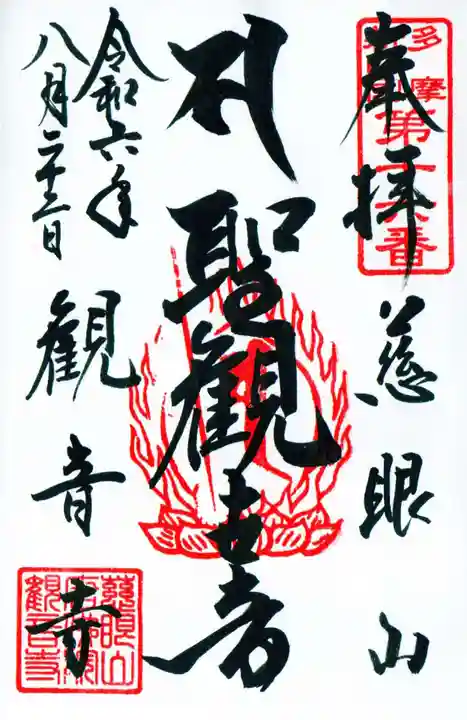 多摩
第十六番
奉拝
慈眼山
聖観世音
令和六年
八月二十三日
観音寺
慈眼山
観音寺